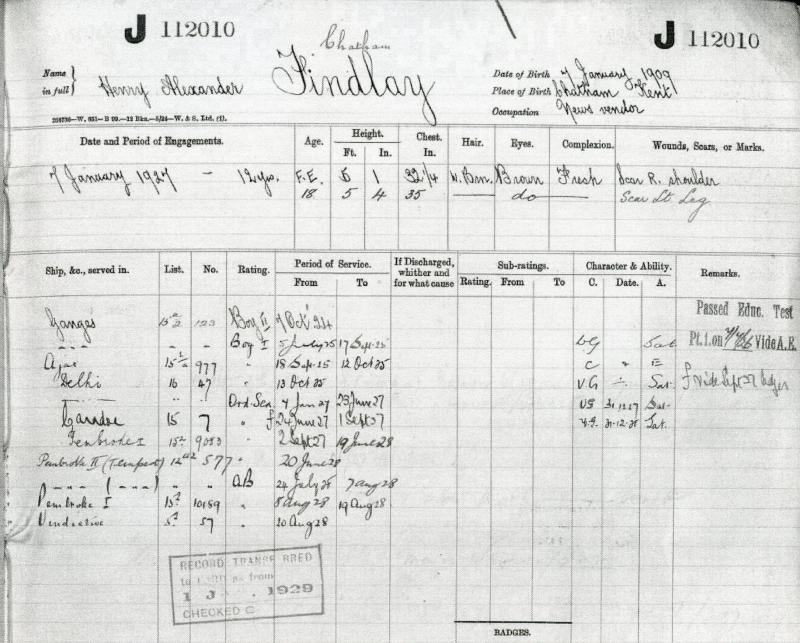 J 112010
Chatham
J 112010
Name in full } Henry Alexander Findlay
Date of Birth 7 January 1909
Place of Birth Chatham Kent
Occupation News vendor
Date and Period of Engagements. Age. Height. Ft. In. Chest. In. Hair. Eyes. Complexion. Wounds, Scars, or Marks.
7 January 1927 — 12 yrs. F.E. 5 1 32 1/4 Brn. Brown Fresh Scar R. shoulder
18 5 4 35 — do — Scar Lt. Leg
Ship, &c., served in. List. No. Rating. Period of Service. From To If Discharged, whither and for what cause Sub-ratings. Rating. From To Character & Ability. C. Date. A. Remarks.
Ganges 123 Boy II 7 Oct 24 Passed Educ. Test
" " " Boy I 5 July 25 17 Sept. 25 VG Sat Pt. 1. on Vide A.E.
Ajax 977 " 18 Sept. 25 12 Oct 25
Delhi 16 47 " 13 Oct 25 V.G Sat.
" " " Ord. Sea 7 Jan 27 23 June 27 VG 31 12 27 Sat.
15 7 " 24 June 27 1 Sept 27 Sat.
Pembroke I 15 " 2 Sept 27 19 June 28
Pembroke II (Tempest) 12 577 " 20 June 28
" — " ( — " ) " " AB 24 July 28 7 Aug 28
Pembroke I 15 10189 " 8 Aug 28 19 Aug 28
Vindictive 5 57 " 20 Aug 28
RECORD TRANSFERRED
from
1929
CHECKED
BADGES.